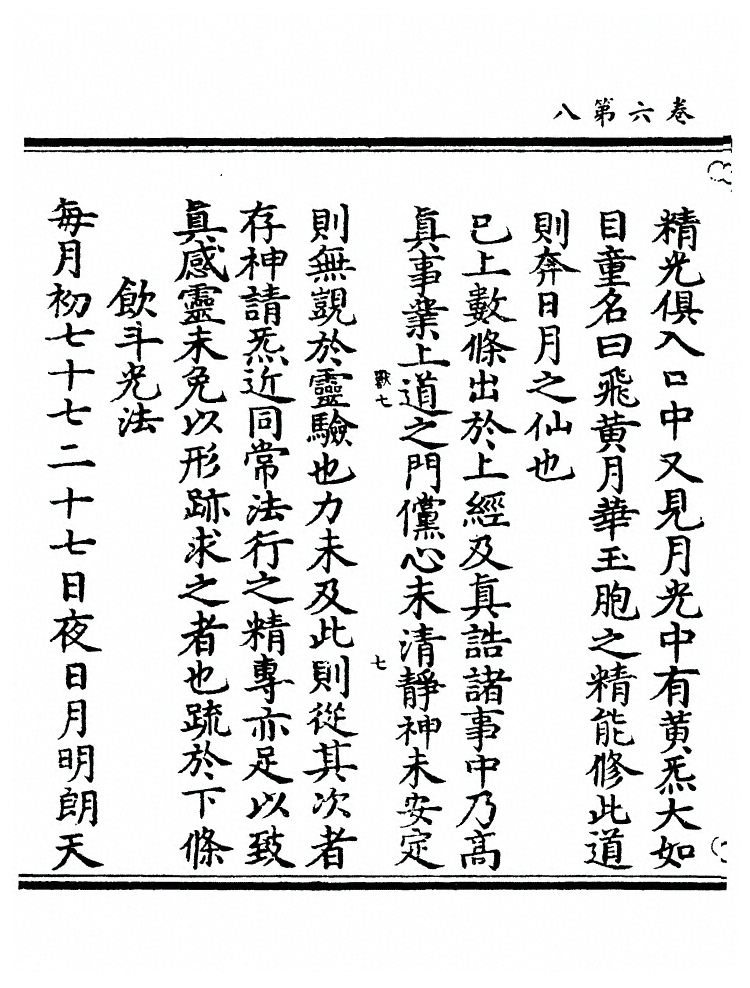 卷六第八
精光俱入口中又見月光中有黃炁大如
目童名曰飛黃月華玉胞之精能修此道
則奔日月之仙也
已上數條出於上經及真誥諸事中乃高
真事業上道之門儻心未清靜神未安定
獸七
七
則無覬於靈驗也力未及此則從其次者
存神請炁近同常法行之精專亦足以致
真感靈未免以形跡求之者也疏於下條
飲斗光法
每月初七十七二十七日夜日月明朗天